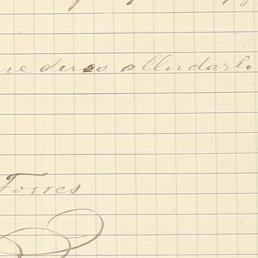 ne deseo alludarlo
Torres